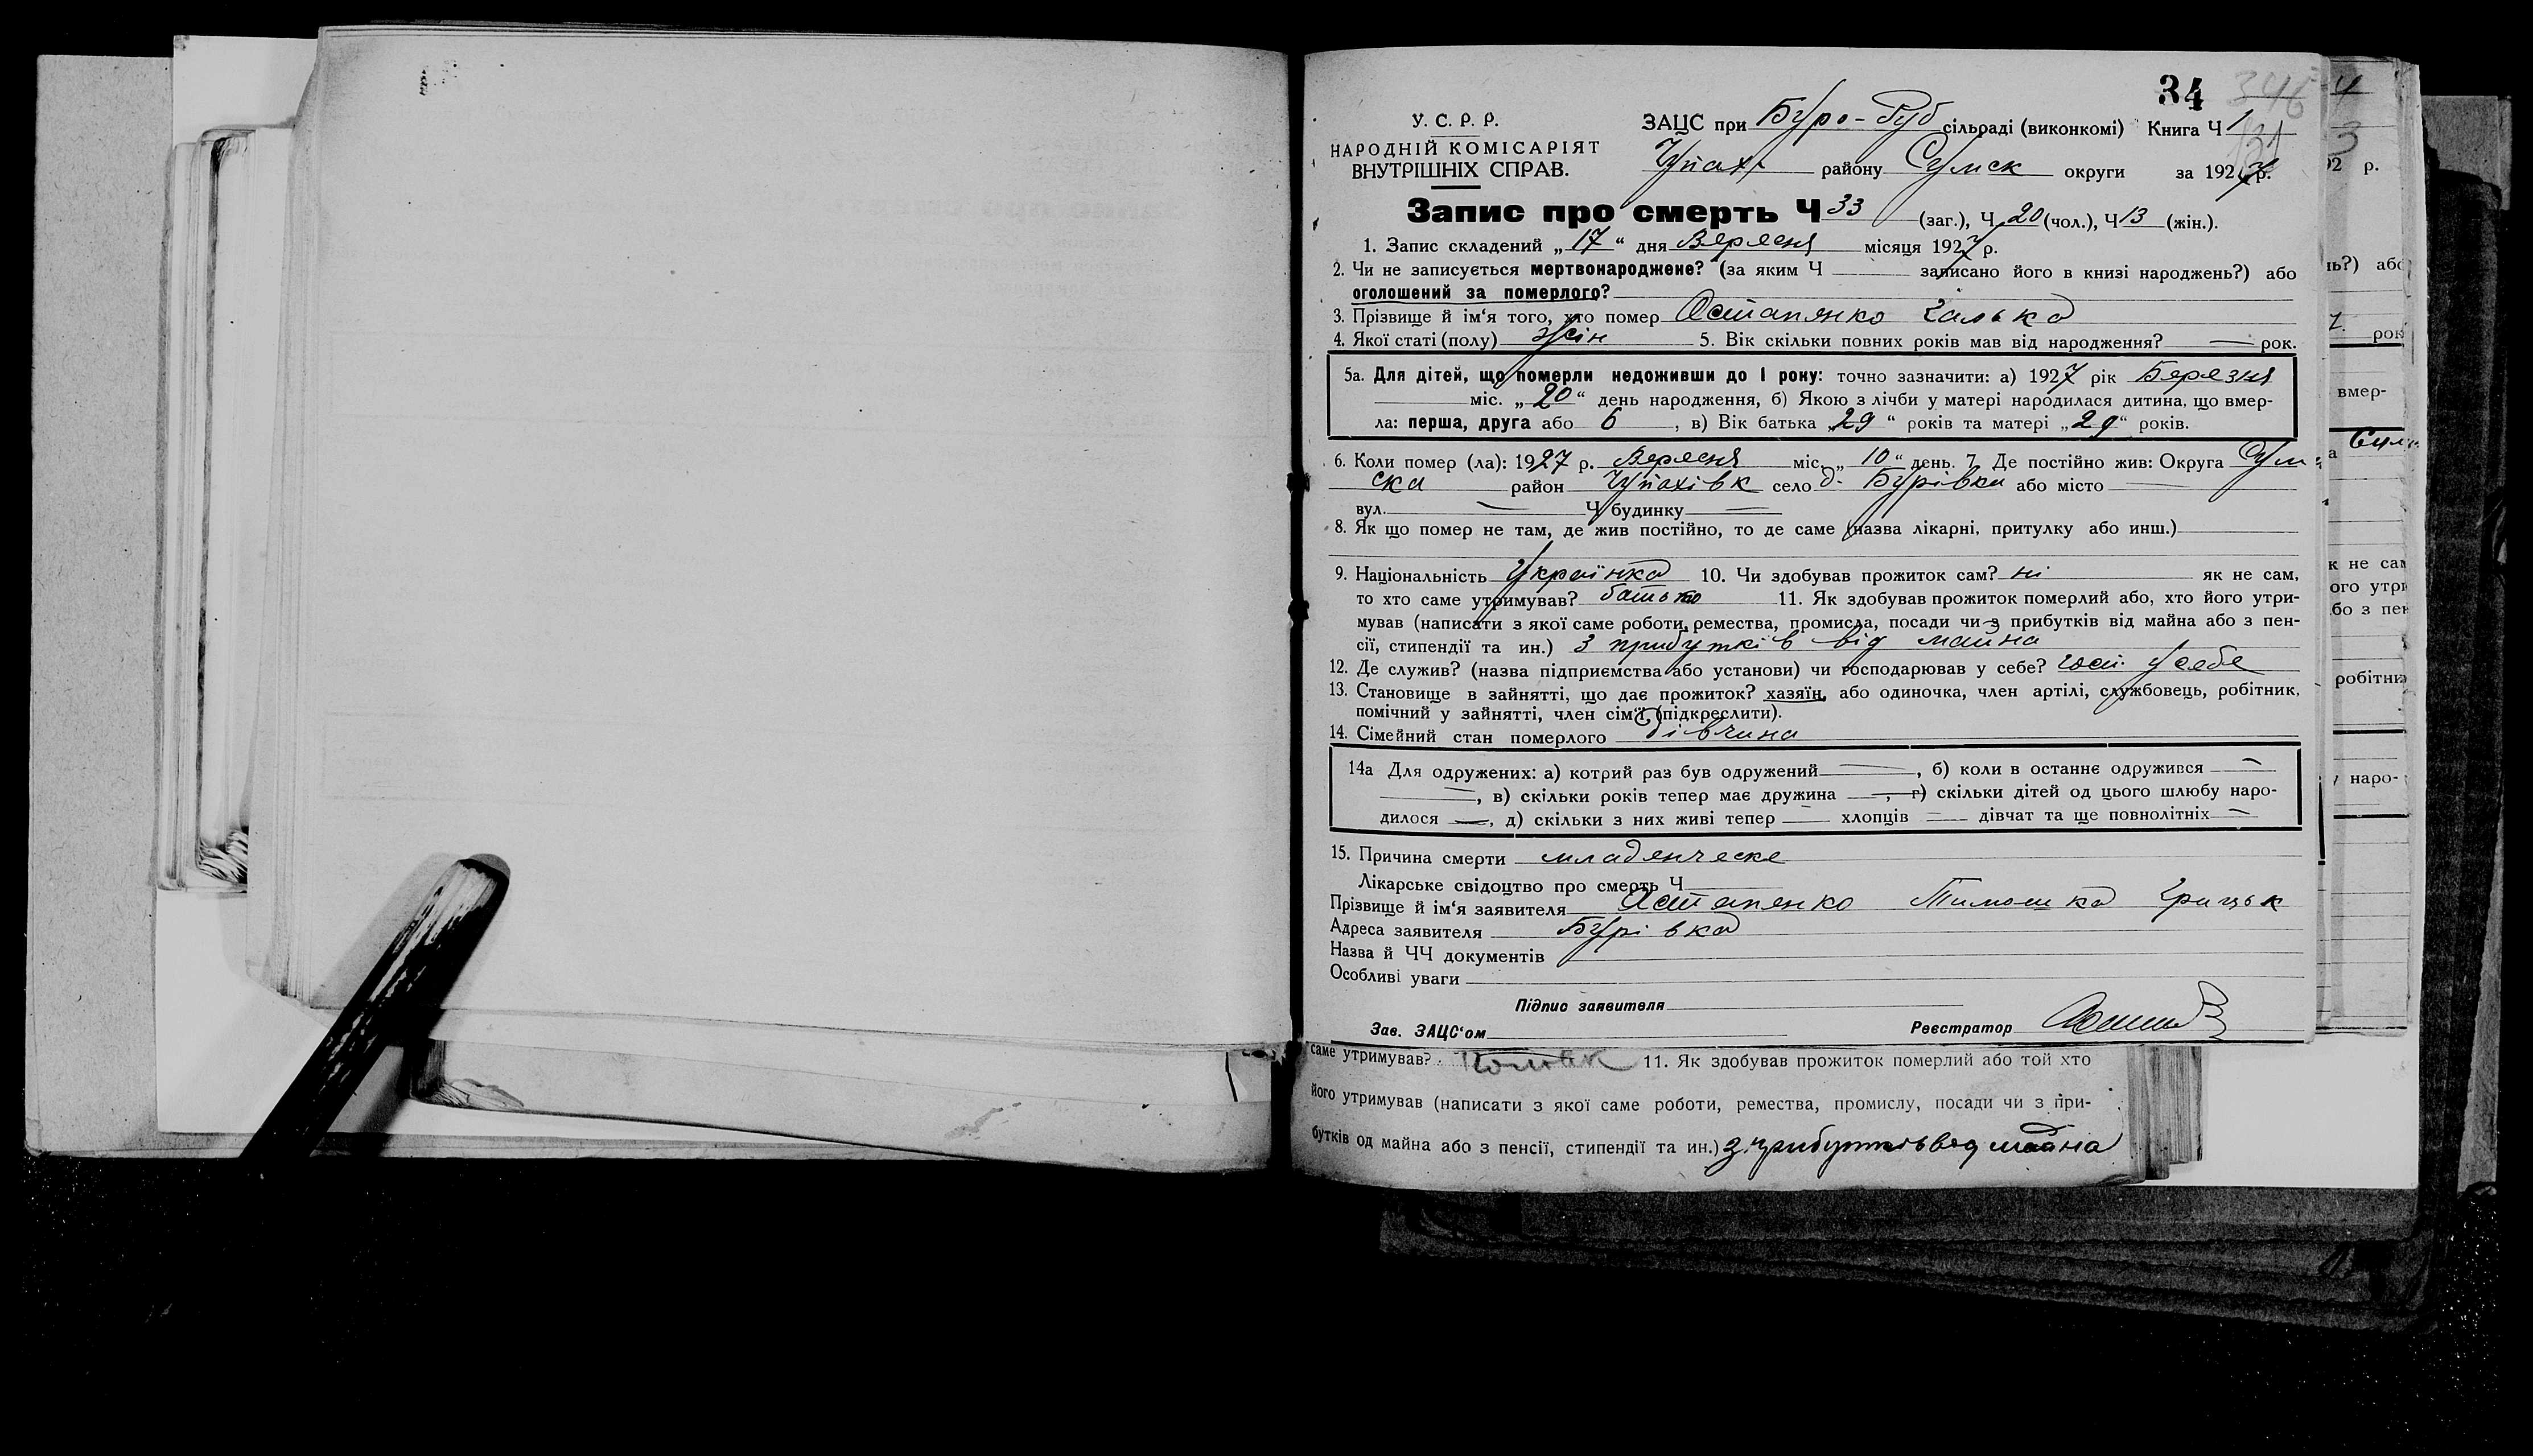 34 346
У. С. Р. Р.
НАРОДНІЙ КОМІСАРІЯТ
ВНУТРІШНІХ СПРАВ.
ЗАЦС при Буро-Руб сільраді (виконкомі) Книга Ч 1
Чупахі району Сумск округи за 1927 р.
Запис про смерть Ч 33 (заг.), Ч 20 (чол.), Ч 13 (жін.).
1. Запис складений „17“ дня Вересня місяця 1927 р.
2. Чи не записується мертвонароджене? (за яким Ч записано його в книзі народжень?) або
оголошений за померлого?
3. Прізвище й ім‘я того, хто помер Остапенко Галька
4. Якої статі (полу) жін 5. Вік скільки повних років мав від народження? — рок.
5а. Для дітей, що померли недоживши до 1 року: точно зазначити: а) 1927 рік Березня
міс. „20“ день народження, б) Якою з лічби у матері народилася дитина, що вмер-
ла: перша, друга або 6, в) Вік батька „29“ років та матері „29“ років.
6. Коли помер (ла): 1927 р. Вересня міс. „10“ день. 7. Де постійно жив: Округа Сум-
ска район Чупахівк село д. Бурівка або місто —
вул. — Ч будинку —
8. Як що помер не там, де жив постійно, то де саме (назва лікарні, притулку або инш.)
9. Національність Українка 10. Чи здобував прожиток сам? ні як не сам,
то хто саме утримував? батько 11. Як здобував прожиток померлий або, хто його утри-
мував (написати з якої саме роботи, ремества, промисла, посади чи з прибутків від майна або з пен-
сії, стипендії та ин.) З прибутків від майна
12. Де служив? (назва підприємства або установи) чи господарював у себе? госп. у себе
13. Становище в зайнятті, що дає прожиток? хазяїн, або одиночка, член артілі, службовець, робітник,
помічний у зайнятті, член сім‘ї, (підкреслити).
14. Сімейний стан померлого дівчина
14а Для одружених: а) котрий раз був одружений —, б) коли в останнє одружився —
—, в) скільки років тепер має дружина —, г) скільки дітей од цього шлюбу наро-
дилося —, д) скільки з них живі тепер — хлопців — дівчат та ще повнолітніх —
15. Причина смерти младенческе
Лікарське свідоцтво про смерть Ч
Прізвище й ім‘я заявителя Остапенко Тимошка Грицьк
Адреса заявителя Бурівка
Назва й ЧЧ документів
Особливі уваги
Підпис заявителя
Зав. ЗАЦС‘ом Реєстратор
саме утримував? 11. Як здобував прожиток померлий або той хто
його утримував (написати з якої саме роботи, ремества, промислу, посади чи з при-
бутків од майна або з пенсії, стипендії та ин.) з прибутків вод майна
4
3
92 р.
нь?) або
рок
вмер-
а Сум
к не сам
ого утри
бо з пен
робітни
у наро-